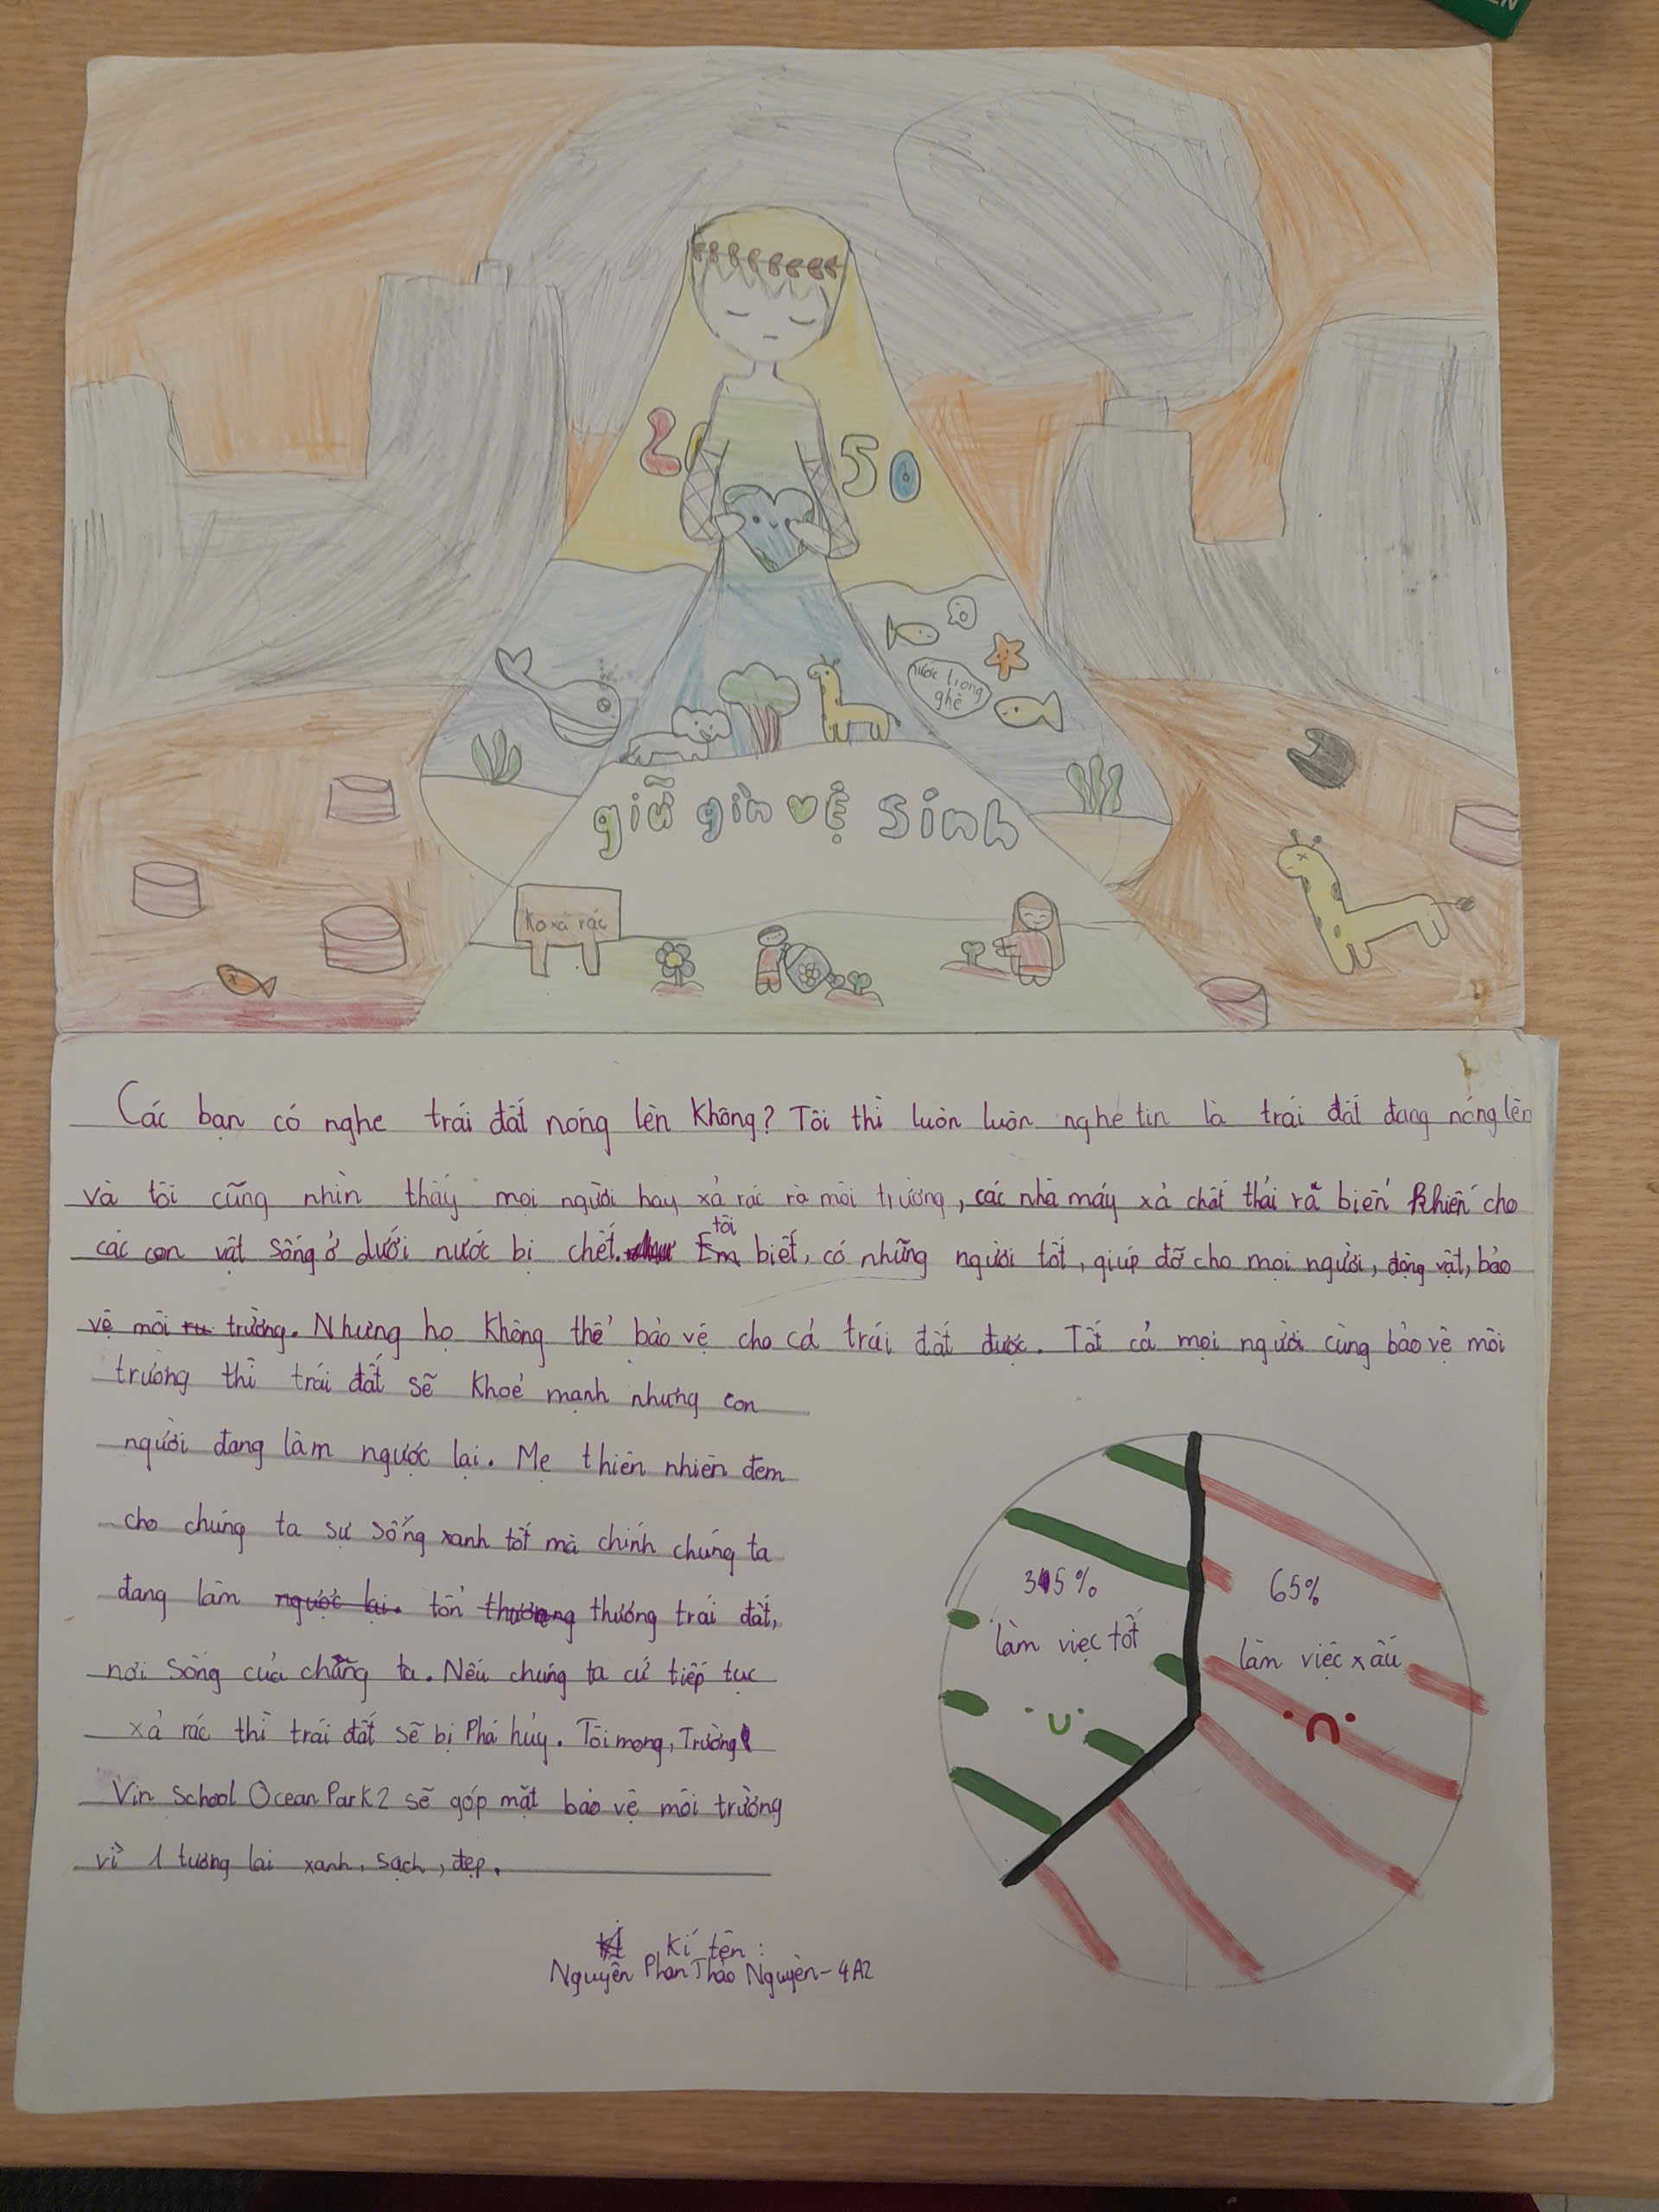 20 50
nước trong
ghê
giữ gìn vệ sinh
Ko xả rác
Các bạn có nghe trái đất nóng lên không? Tôi thì luôn luôn nghe tin là trái đất đang nóng lên
và tôi cũng nhìn thấy mọi người hay xả rác ra môi trường, các nhà máy xả chất thải ra biển khiến cho
các con vật sống ở dưới nước bị chết. tôi biết, có những người tốt, giúp đỡ cho mọi người, động vật, bảo
vệ môi trường. Nhưng họ không thể bảo vệ cho cả trái đất được. Tất cả mọi người cùng bảo vệ môi
trường thì trái đất sẽ khoẻ mạnh nhưng con
người đang làm ngược lại. Mẹ thiên nhiên đem
cho chúng ta sự sống xanh tốt mà chính chúng ta
đang làm ngược lại. tổn thương thương trái đất,
nơi sống của chúng ta. Nếu chúng ta cứ tiếp tục
xả rác thì trái đất sẽ bị Phá hủy. Tôi mong, Trường
Vin School Ocean Park 2 sẽ góp mặt bảo vệ môi trường
vì 1 tương lai xanh, sạch, đẹp.
35%
làm việc tốt
65%
làm việc xấu
Kí tên:
Nguyễn Phan Thảo Nguyên - 4A2